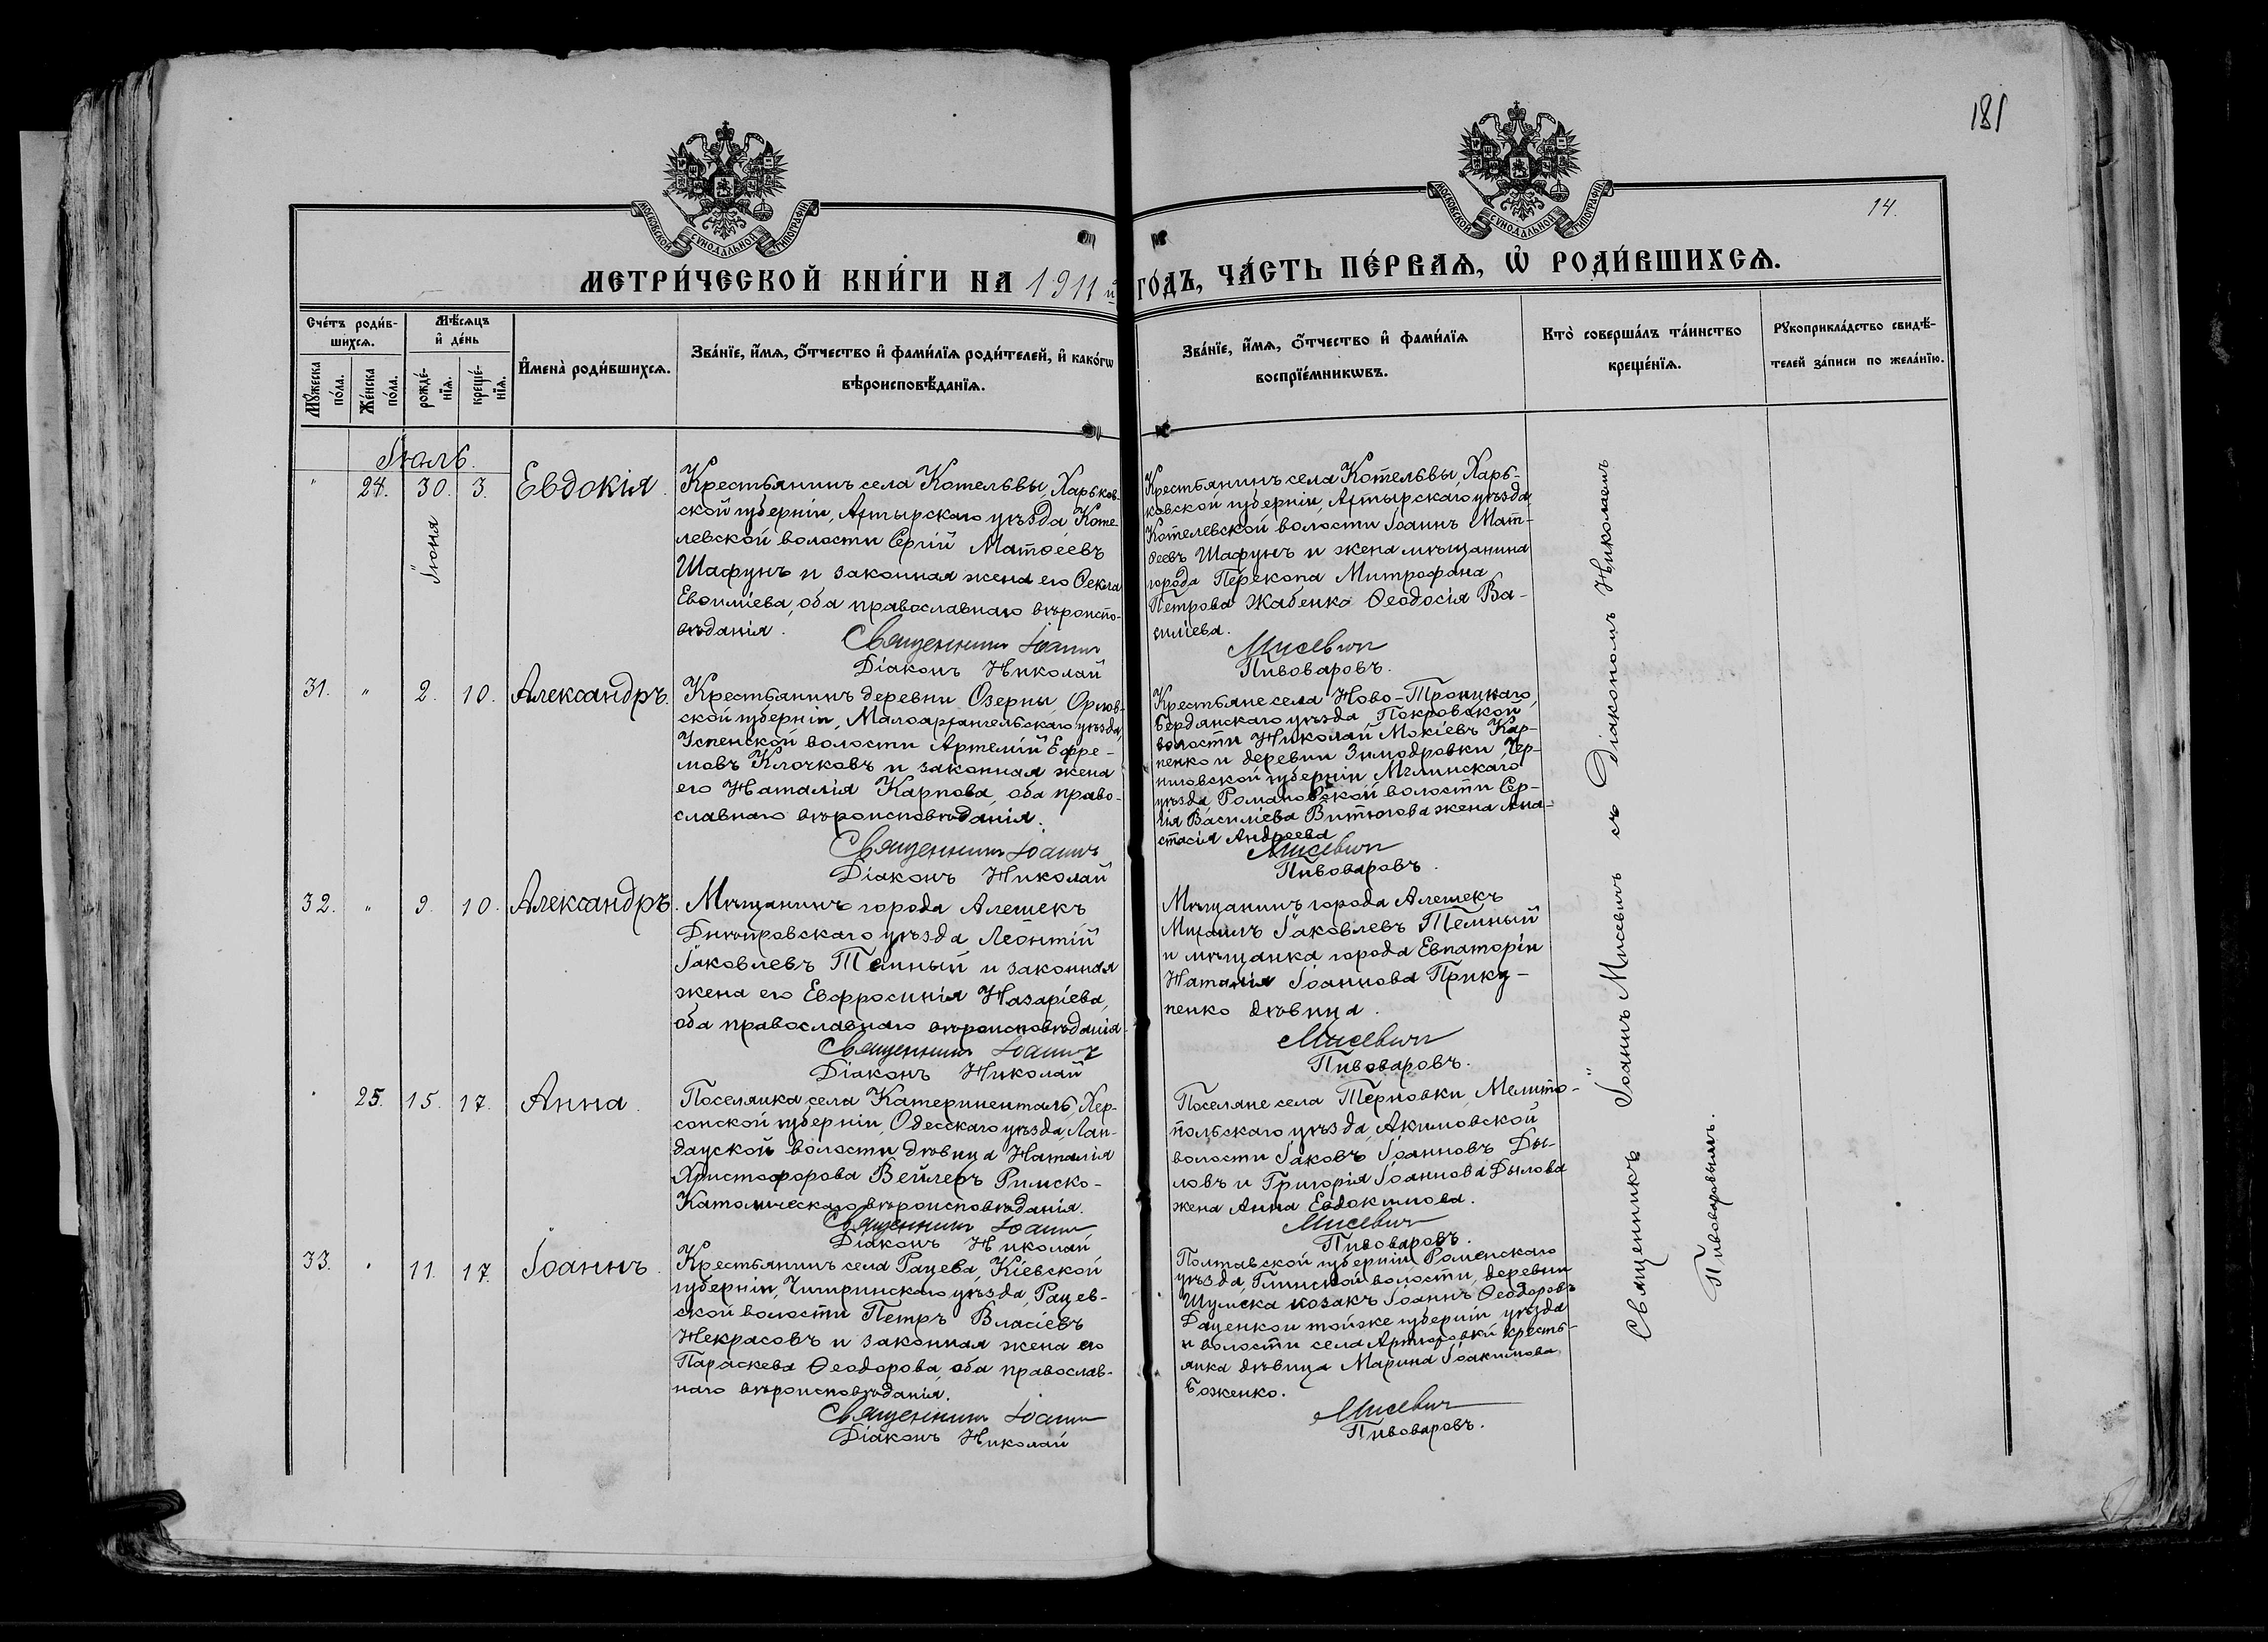 181
14.
МОСКОВСКОЙ СУНОДАЛЬНОЙ ТИПОГРАФІИ
МОСКОВСКОЙ СУНОДАЛЬНОЙ ТИПОГРАФІИ
МЕТРИ́ЧЕСКОЙ КНИ́ГИ НА 1911й ГО́ДЪ, ЧА́СТЬ ПЕ́РВАѦ, Ѡ҆ РОДИ́ВШИХСѦ.
Сче́тъ роди́в-
шихсѧ.
Мꙋ́жеска по́ла.
Же́нска по́ла.
Мѣ́сѧцъ
и҆ де́нь
рожде́-
нїѧ.
креще́-
нїѧ.
И҆мена̀ роди́вшихсѧ.
Зва́нїе, и҆́мѧ, ѻ҆́тчество и҆ фами́лїѧ роди́телей, и҆ како́гѡ
вѣроисповѣ́данїѧ.
Зва́нїе, и҆́мѧ, ѻ҆́тчество и҆ фами́лїѧ
воспрїе́мникѡвъ.
Кто̀ соверша́лъ та́инство
креще́нїѧ.
Рꙋкоприкла́дство свидѣ́-
телей за́писи по жела́нїю.
Іюль.
" 24. 30. 3. Евдокія.
Іюня
Крестьянинъ села Котельвы, Харьков-
ской губерніи, Ахтырскаго уѣзда Коте-
левской волости Сергій Матѳеевъ
Шафунъ и законная жена его Ѳекла
Евѳиміева, оба православнаго вѣроиспо-
вѣданія.
Священникъ Іоаннъ
Діаконъ Николай
Крестьянинъ села Котельвы, Харь-
ковской губерніи, Ахтырскаго уѣзда,
Котелевской волости Іоаннъ Мат-
ѳеевъ Шафунъ и жена мѣщанина
города Перекопа Митрофана
Петрова Жабенко Ѳеодосія Ва-
силіева.
Мисевич
Пивоваровъ.
31. " 2. 10. Александръ.
Крестьянинъ деревни Озерны, Орлов-
ской губерніи, Малоархангельскаго уѣзда,
Успенской волости Артемій Ефре-
мовъ Клочковъ и законная жена
его Наталія Карпова, оба право-
славнаго вѣроисповѣданія.
Священникъ Іоаннъ
Діаконъ Николай
Крестьяне села Ново-Троицкаго,
Бердянскаго уѣзда, Покровской
волости Николай Мокіевъ Кар-
пенко и деревни Зимодровки Чер-
ниговской губерніи Мглинскаго
уѣзда Романовской волости Сер-
гія Василіева Витюгова жена Ана-
стасія Андреева
Мисевич
Пивоваровъ.
32. " 9. 10. Александръ.
Мѣщанинъ города Алешекъ
Днѣпровскаго уѣзда Леонтій
Іаковлевъ Темный и законная
жена его Евфросинія Назаріева,
оба православнаго вѣроисповѣданія.
Священникъ Іоаннъ
Діаконъ Николай
Мѣщанинъ города Алешекъ
Михаилъ Іаковлевъ Темный
и мѣщанка города Евпаторіи
Наталія Іоаннова Прику-
пенко дѣвица.
Мисевич
Пивоваровъ.
" 25. 15. 17. Анна.
Поселянка села Катериненталь, Хер-
сонской губерніи, Одесскаго уѣзда, Лан-
дауской волости дѣвица Наталія
Христофорова Вейлеръ Римско-
Католическаго вѣроисповѣданія.
Священникъ Іоаннъ
Діаконъ Николай
Поселяне села Терновки, Мелито-
польскаго уѣзда, Акимовской
волости Іаковъ Іоанновъ Ды-
ловъ и Григорія Іоаннова Дылова
жена Анна Евдокимова.
Мисевич
Пивоваровъ.
33. " 11. 17. Іоаннъ.
Крестьянинъ села Рацева, Кіевской
губерніи, Чигиринскаго уѣзда, Рацев-
ской волости Петръ Власіевъ
Некрасовъ и законная жена его
Параскева Ѳеодорова, оба православ-
наго вѣроисповѣданія.
Священникъ Іоаннъ
Діаконъ Николай
Полтавской губерніи, Роменскаго
уѣзда, Глинской волости, деревни
Шумска козакъ Іоаннъ Ѳеодоровъ
Даценко и той же губерніи, уѣзда
и волости села Артюховки кресть-
янка дѣвица Марина Іоакимова
Боженко.
Мисевич
Пивоваровъ.
Священникъ Іоаннъ Мисевичъ съ Діакономъ Николаемъ
Пивоваровымъ.